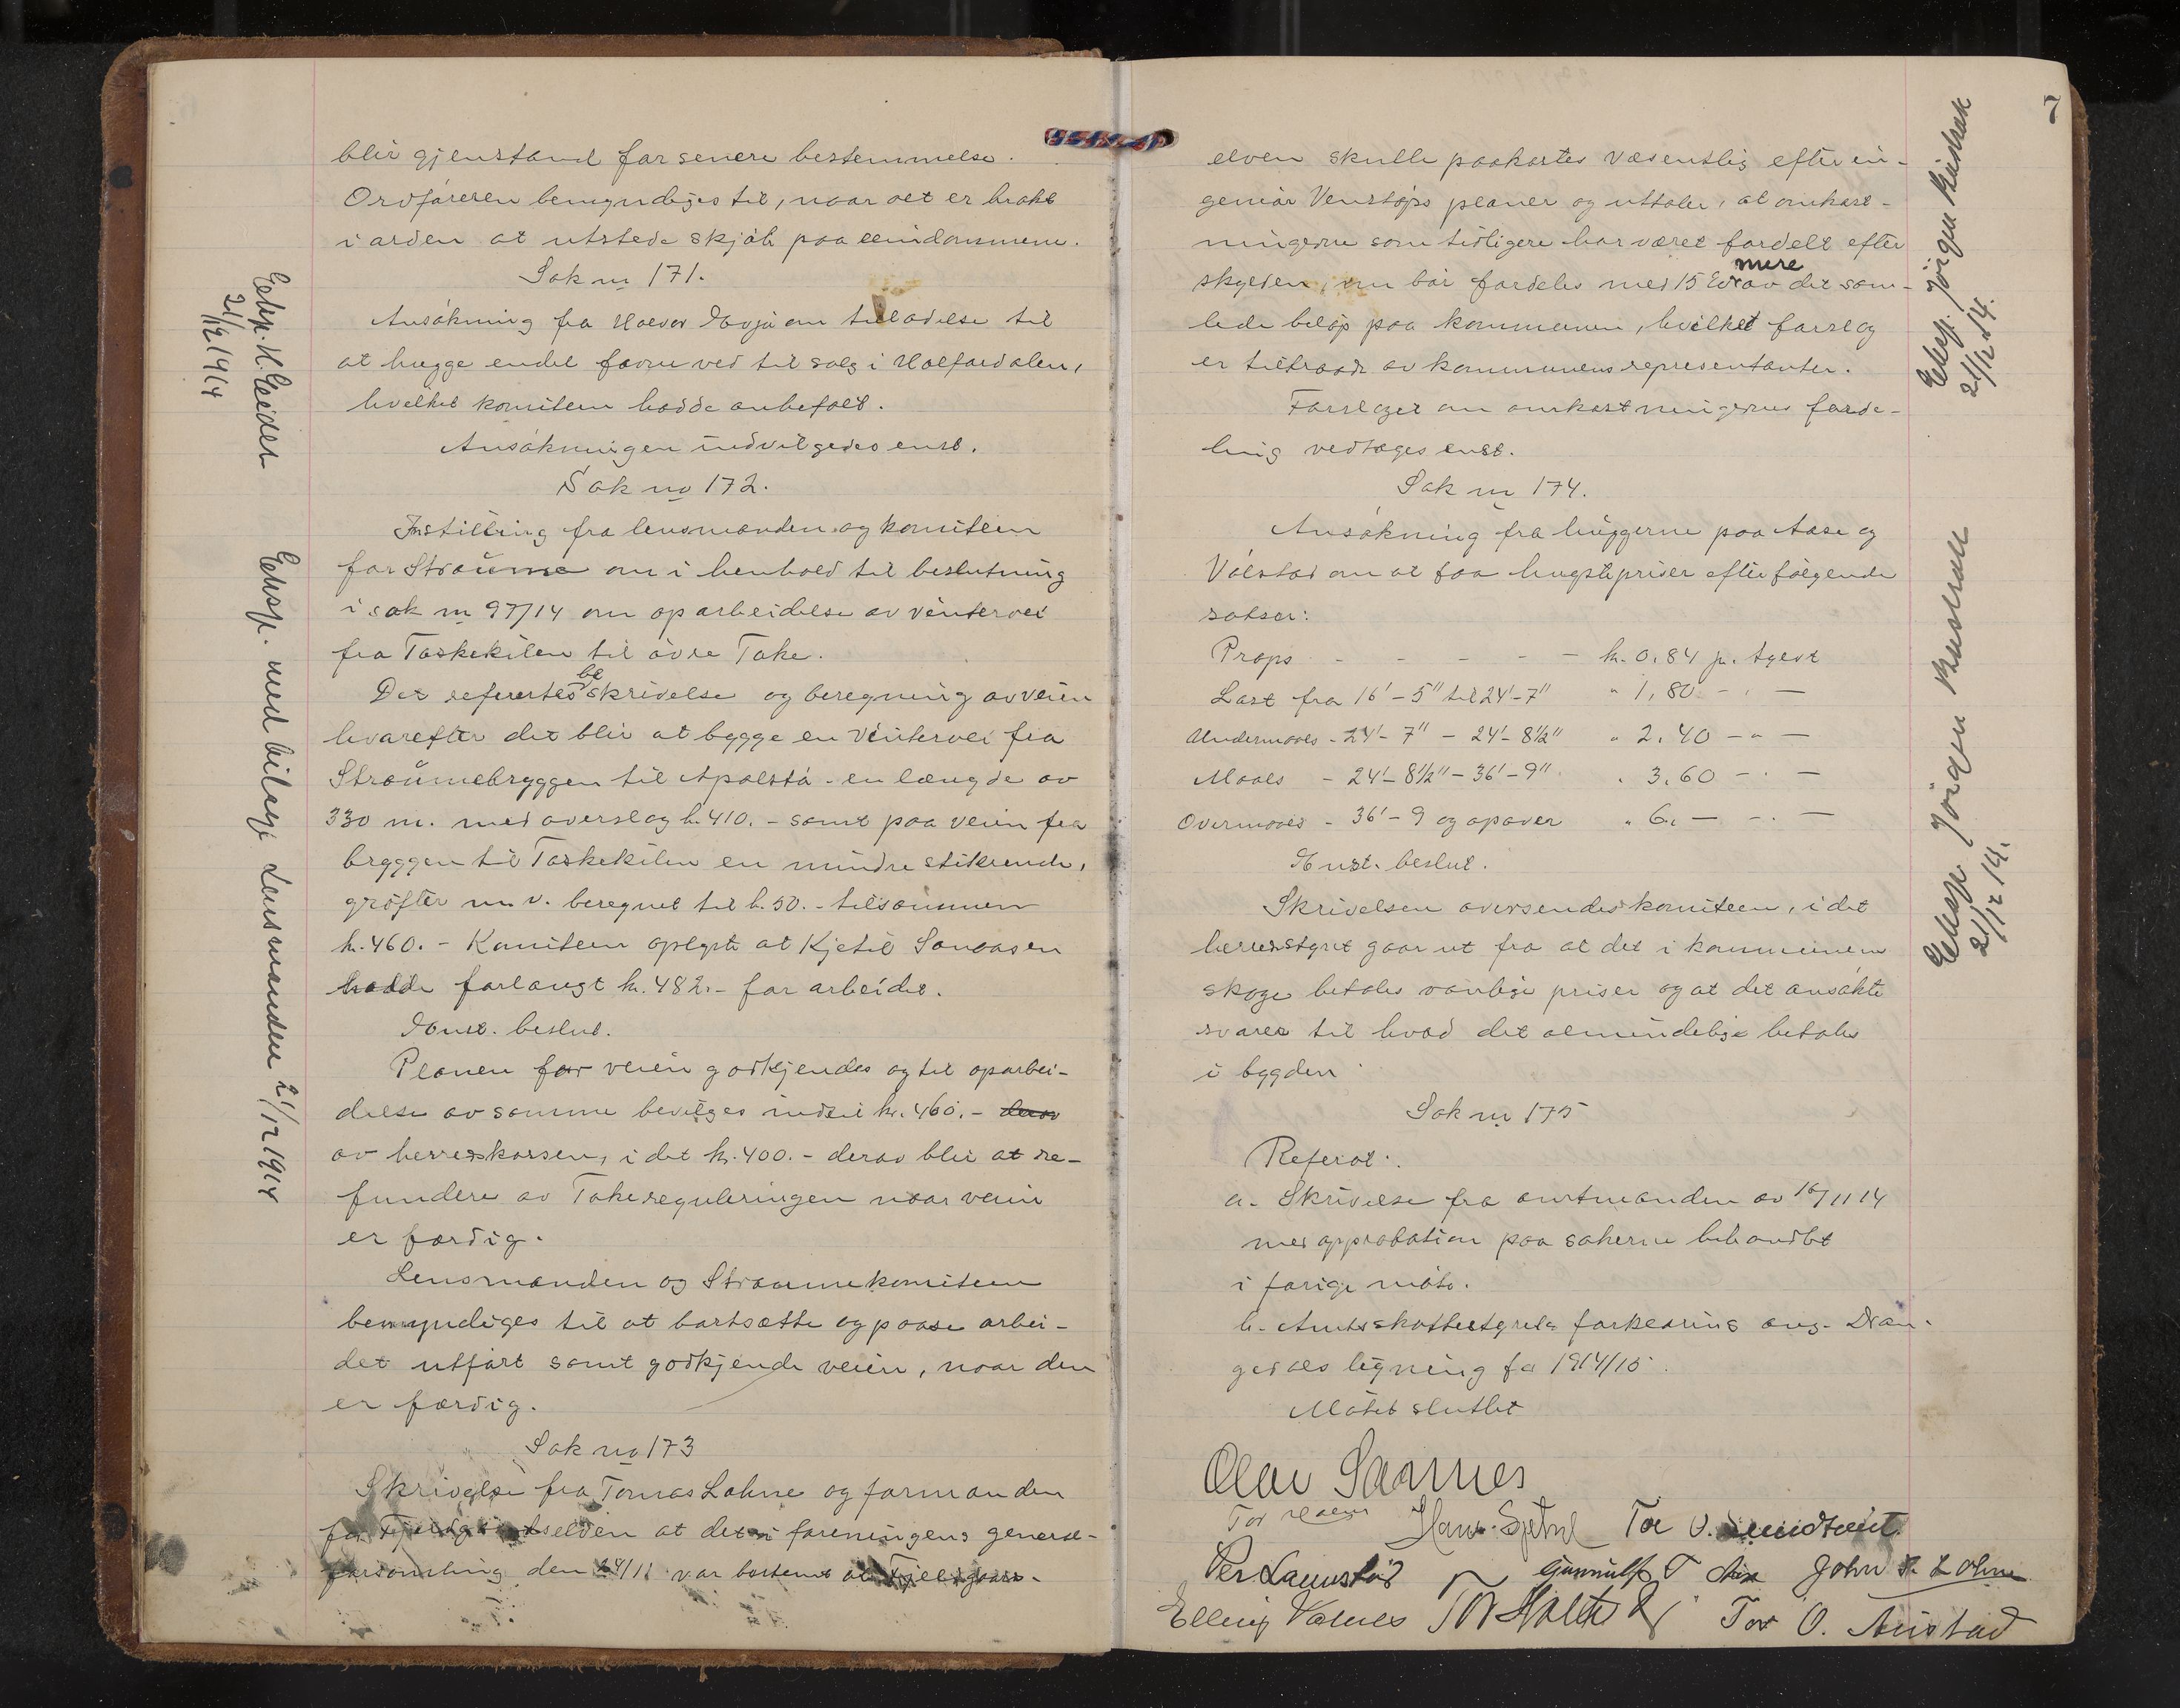 blir gjenstand for senere bestemmelse.
Ordføreren bemyndiges til, naar det er brakt
i orden at utstede skjøte paa eiendommene.
Sak no 171.
Ansökning fra Halvor Hovja om tilladelse til
at hugge endel favne ved til salg i Halfardalen,
hvilket komiteen hadde anbefalt.
Ansökningen indvilgedes enst.
Sak no 172.
Instilling fra lensmanden og komiteen
for Straume om i henhold til beslutning
i sak no 97/14 om oparbeidelse av vintervei
fra Taskekilen til övre Toke.
Det referertes beskrivelse og beregning av veien
hvorefter det blir at bygge en vintervei fra
Straumebryggen til Apalstø - en længde av
330 m. med overslag kr. 410. - samt paa veien fra
bryggen til Taskekilen en mindre stikrende,
gröfter m.v. beregnet til kr. 50. - tilsammen
kr. 460. - Komiteen oplyste at Kjetil Sandaasen
hadde forlangt kr. 482. - for arbeidet.
Enst. beslut.
Planen for veien godkjendes og til oparbei-
delse av samme bevilges indtil kr. 460. - derav
av herredskassen, i det kr. 400. - derav blir at re-
fundere av Tokereguleringen naar veien
er færdig.
Lensmanden og Straumekomiteen
bemyndiges til at bortsætte og paase arbei-
det utfört samt godkjende veien, naar den
er færdig.
Sak no 173
Skrivelse fra Tomas Lohne og formanden
for at det i foreningens general-
forsamling den 24/11 var bestemt at Fjeldgaars-
Eksp. H. Geider
21/12 1914
Eksp. med bilag Lensmanden 21/12 1914
7
elven skulle paakostes væsentlig efter in-
geniör Venstöps planer og uttaler, at omkost-
ningerne som tidligere har været fordelt efter
skylden, nu bör fordeles med 15 % mere av det sam-
lede belöp paa kommunen, hvilket forslag
er tiltraadt av kommunens representanter.
Forslaget om omkostningernes forde-
ling vedtages enst.
Sak no 174.
Ansökning fra huggerne paa Aase og
Völstad om at faa hugstpriser efter fölgende
satser:
Props - - - - - kr. 0,84 pr. tylvt
Last fra 16' - 5" til 24' - 7" " 1,80 - " -
Undermaals - 24' - 7" - 24' - 8½" " 2.40 - " -
Maals - 24' - 8½" - 36' - 9" " 3.60 - " -
Overmaals - 36' - 9 og opover " 6. - - " -
Enst. beslut.
Skrivelsen oversendes komiteen, i det
herredsstyret gaar ut fra at det i kommunens
skoge betales vanlige priser og at det ansökte
svarer til hvad det almindelige betales
i bygden.
Sak no 175
Referat:
a. Skrivelse fra amtmanden av 16/11 14
med approbation paa sakerne behandlet
i forige möte.
b. Amtsskattestyrets forklaring ang. Dran-
gedals ligning for 1914/15.
Mötet sluttet
Olav Sannes
Tor Hans Tor O.
Per Laumstad Gunnulf T John P. Lohne
Elling Valnes Tor Holte Tor O. Austad
Eksp. Jörgen
21/12 14.
Eksp. Jörgen
21/12 14.